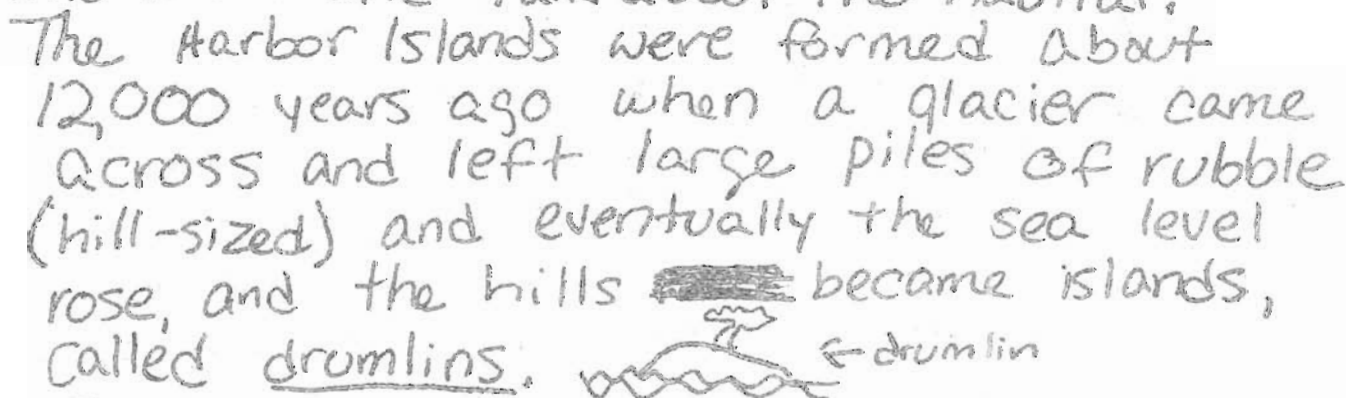 The Harbor Islands were formed about
12,000 years ago when a glacier came
across and left large piles of rubble
(hill-sized) and eventually the sea level
rose, and the hills became islands,
called drumlins. ← drumlin